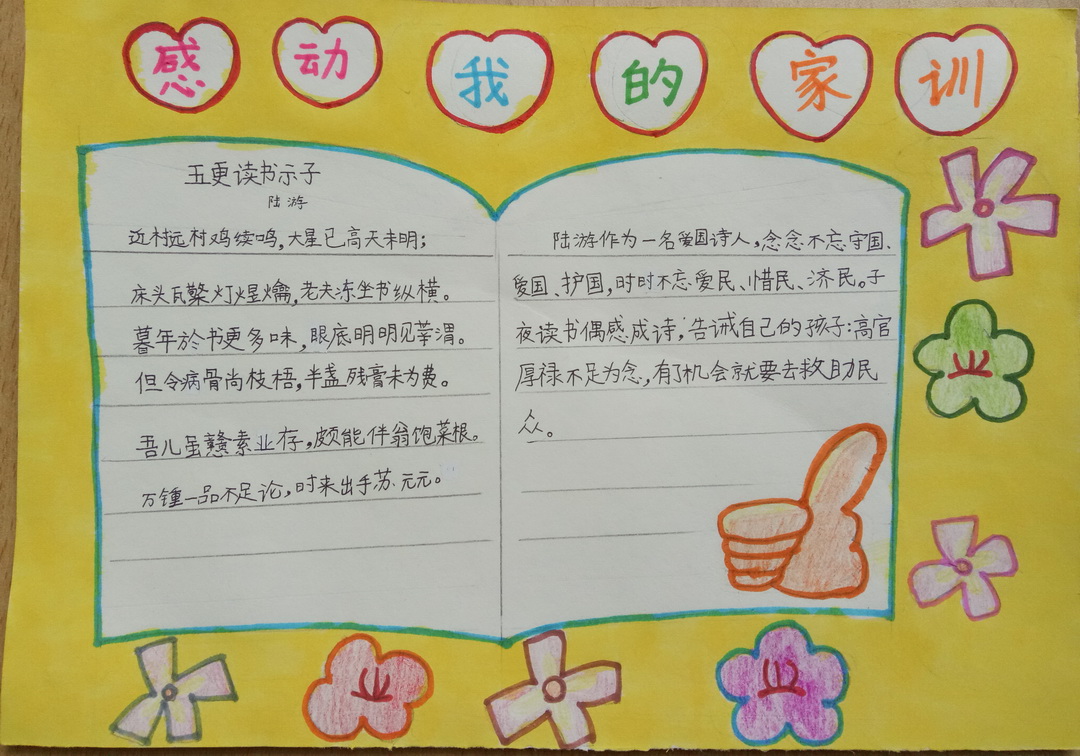 感动我的家训
五更读书示子
陆游
近村远村鸡续鸣,大星已高天未明;
床头瓦檠灯煜爚,老夫冻坐书纵横。
暮年於书更多味,眼底明明见莘渭。
但令病骨尚枝梧,半盏残膏未为费。
吾儿虽戆素业存,颇能伴翁饱菜根。
万锺一品不足论,时来出手苏元元。
陆游作为一名爱国诗人,念念不忘守国、
爱国、护国,时时不忘爱民、惜民、济民。子
夜读书偶感成诗,告诫自己的孩子:高官
厚禄不足为念,有了机会就要去救助民
众。